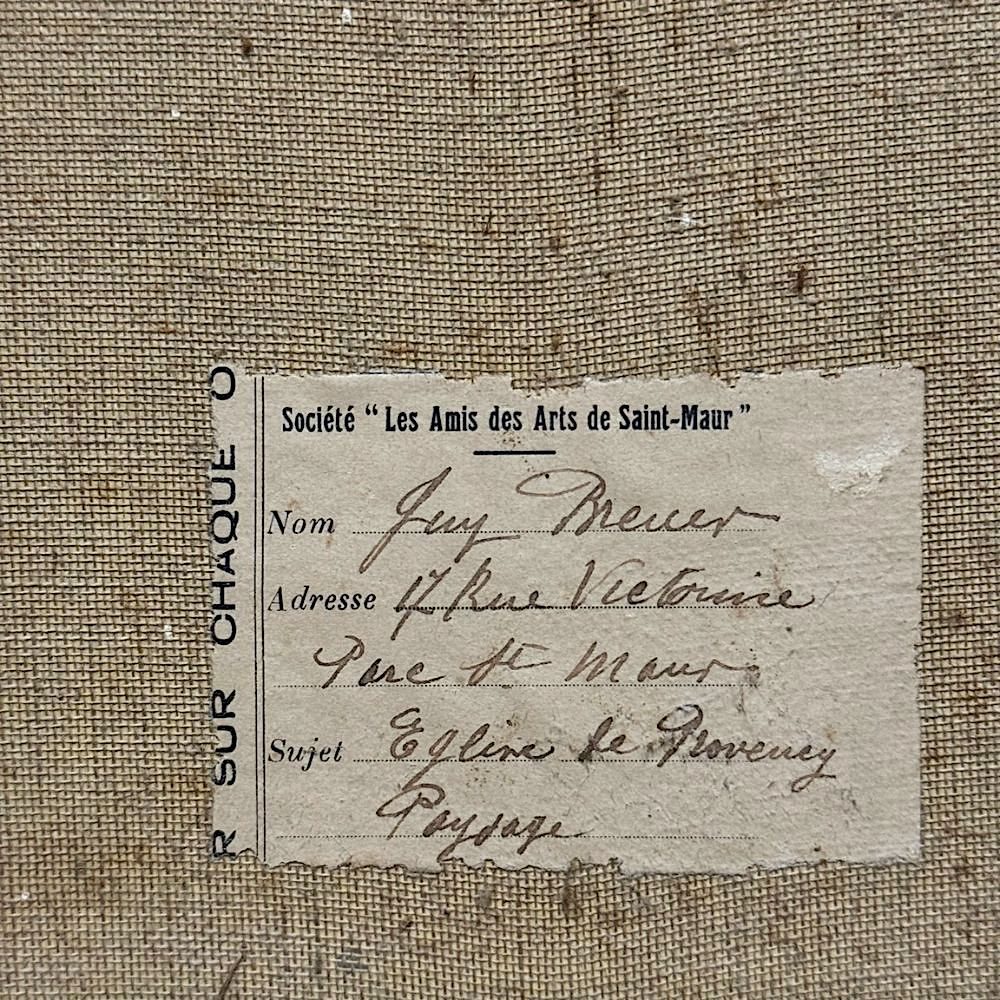 R SUR CHAQUE O
Société “ Les Amis des Arts de Saint-Maur ”
Nom Guy Breuer
Adresse 17 Rue Victorine
Parc St Maur
Sujet Eglise de Provency
Paysage